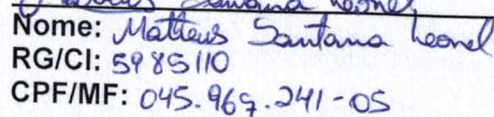 Nome: Matteus Santana Leonel
RG/CI: 5985110
CPF/MF: 045.969.241-05